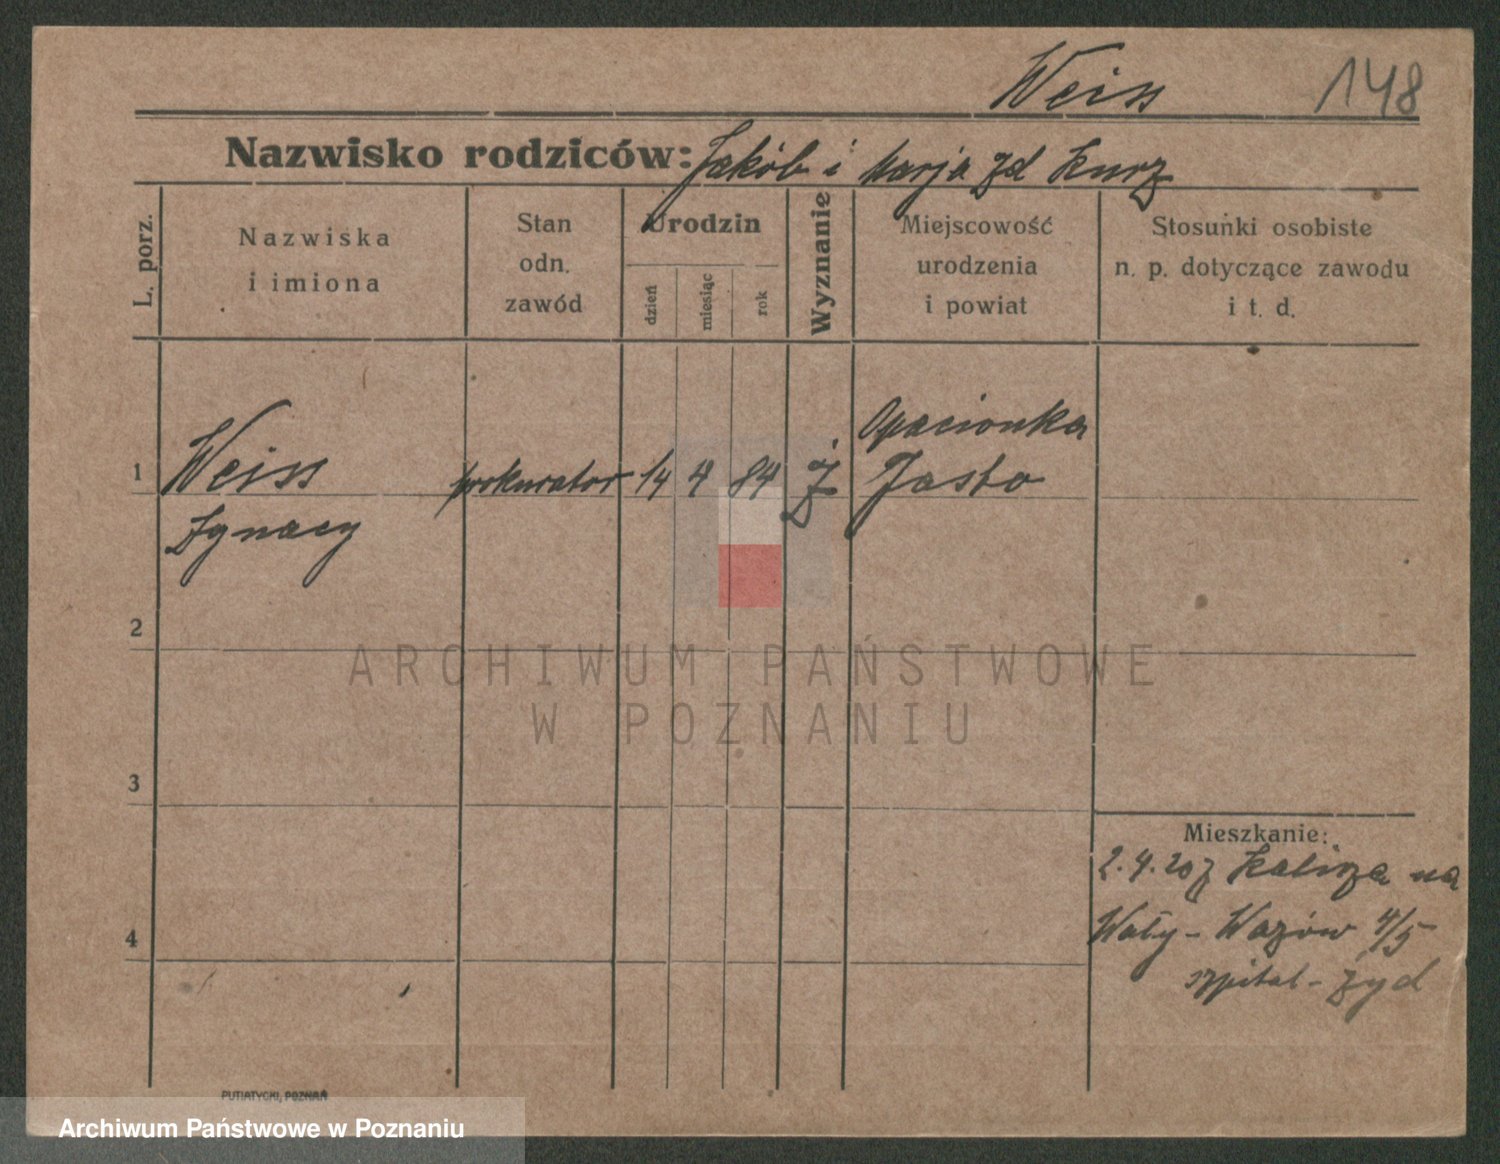 Weiss 148
Nazwisko rodziców: Jakób i Marja zd Kurz
L. porz.
Nazwiska
i imiona
Stan
odn.
zawód
Urodzin
dzień
miesiąc
rok
Wyznanie
Miejscowość
urodzenia
i powiat
Stosunki osobiste
n. p. dotyczące zawodu
i t. d.
Opacionka
1 Weiss prokurator 14 4 84 ż Jasło
Ignacy
2
ARCHIWUM PAŃSTWOWE
W POZNANIU
3
Mieszkanie:
2.4.20 z Kalisza na
4 Wały - Wazów 4/5
szpital - żyd
PUTIATYCKI, POZNAŃ
Archiwum Państwowe w Poznaniu